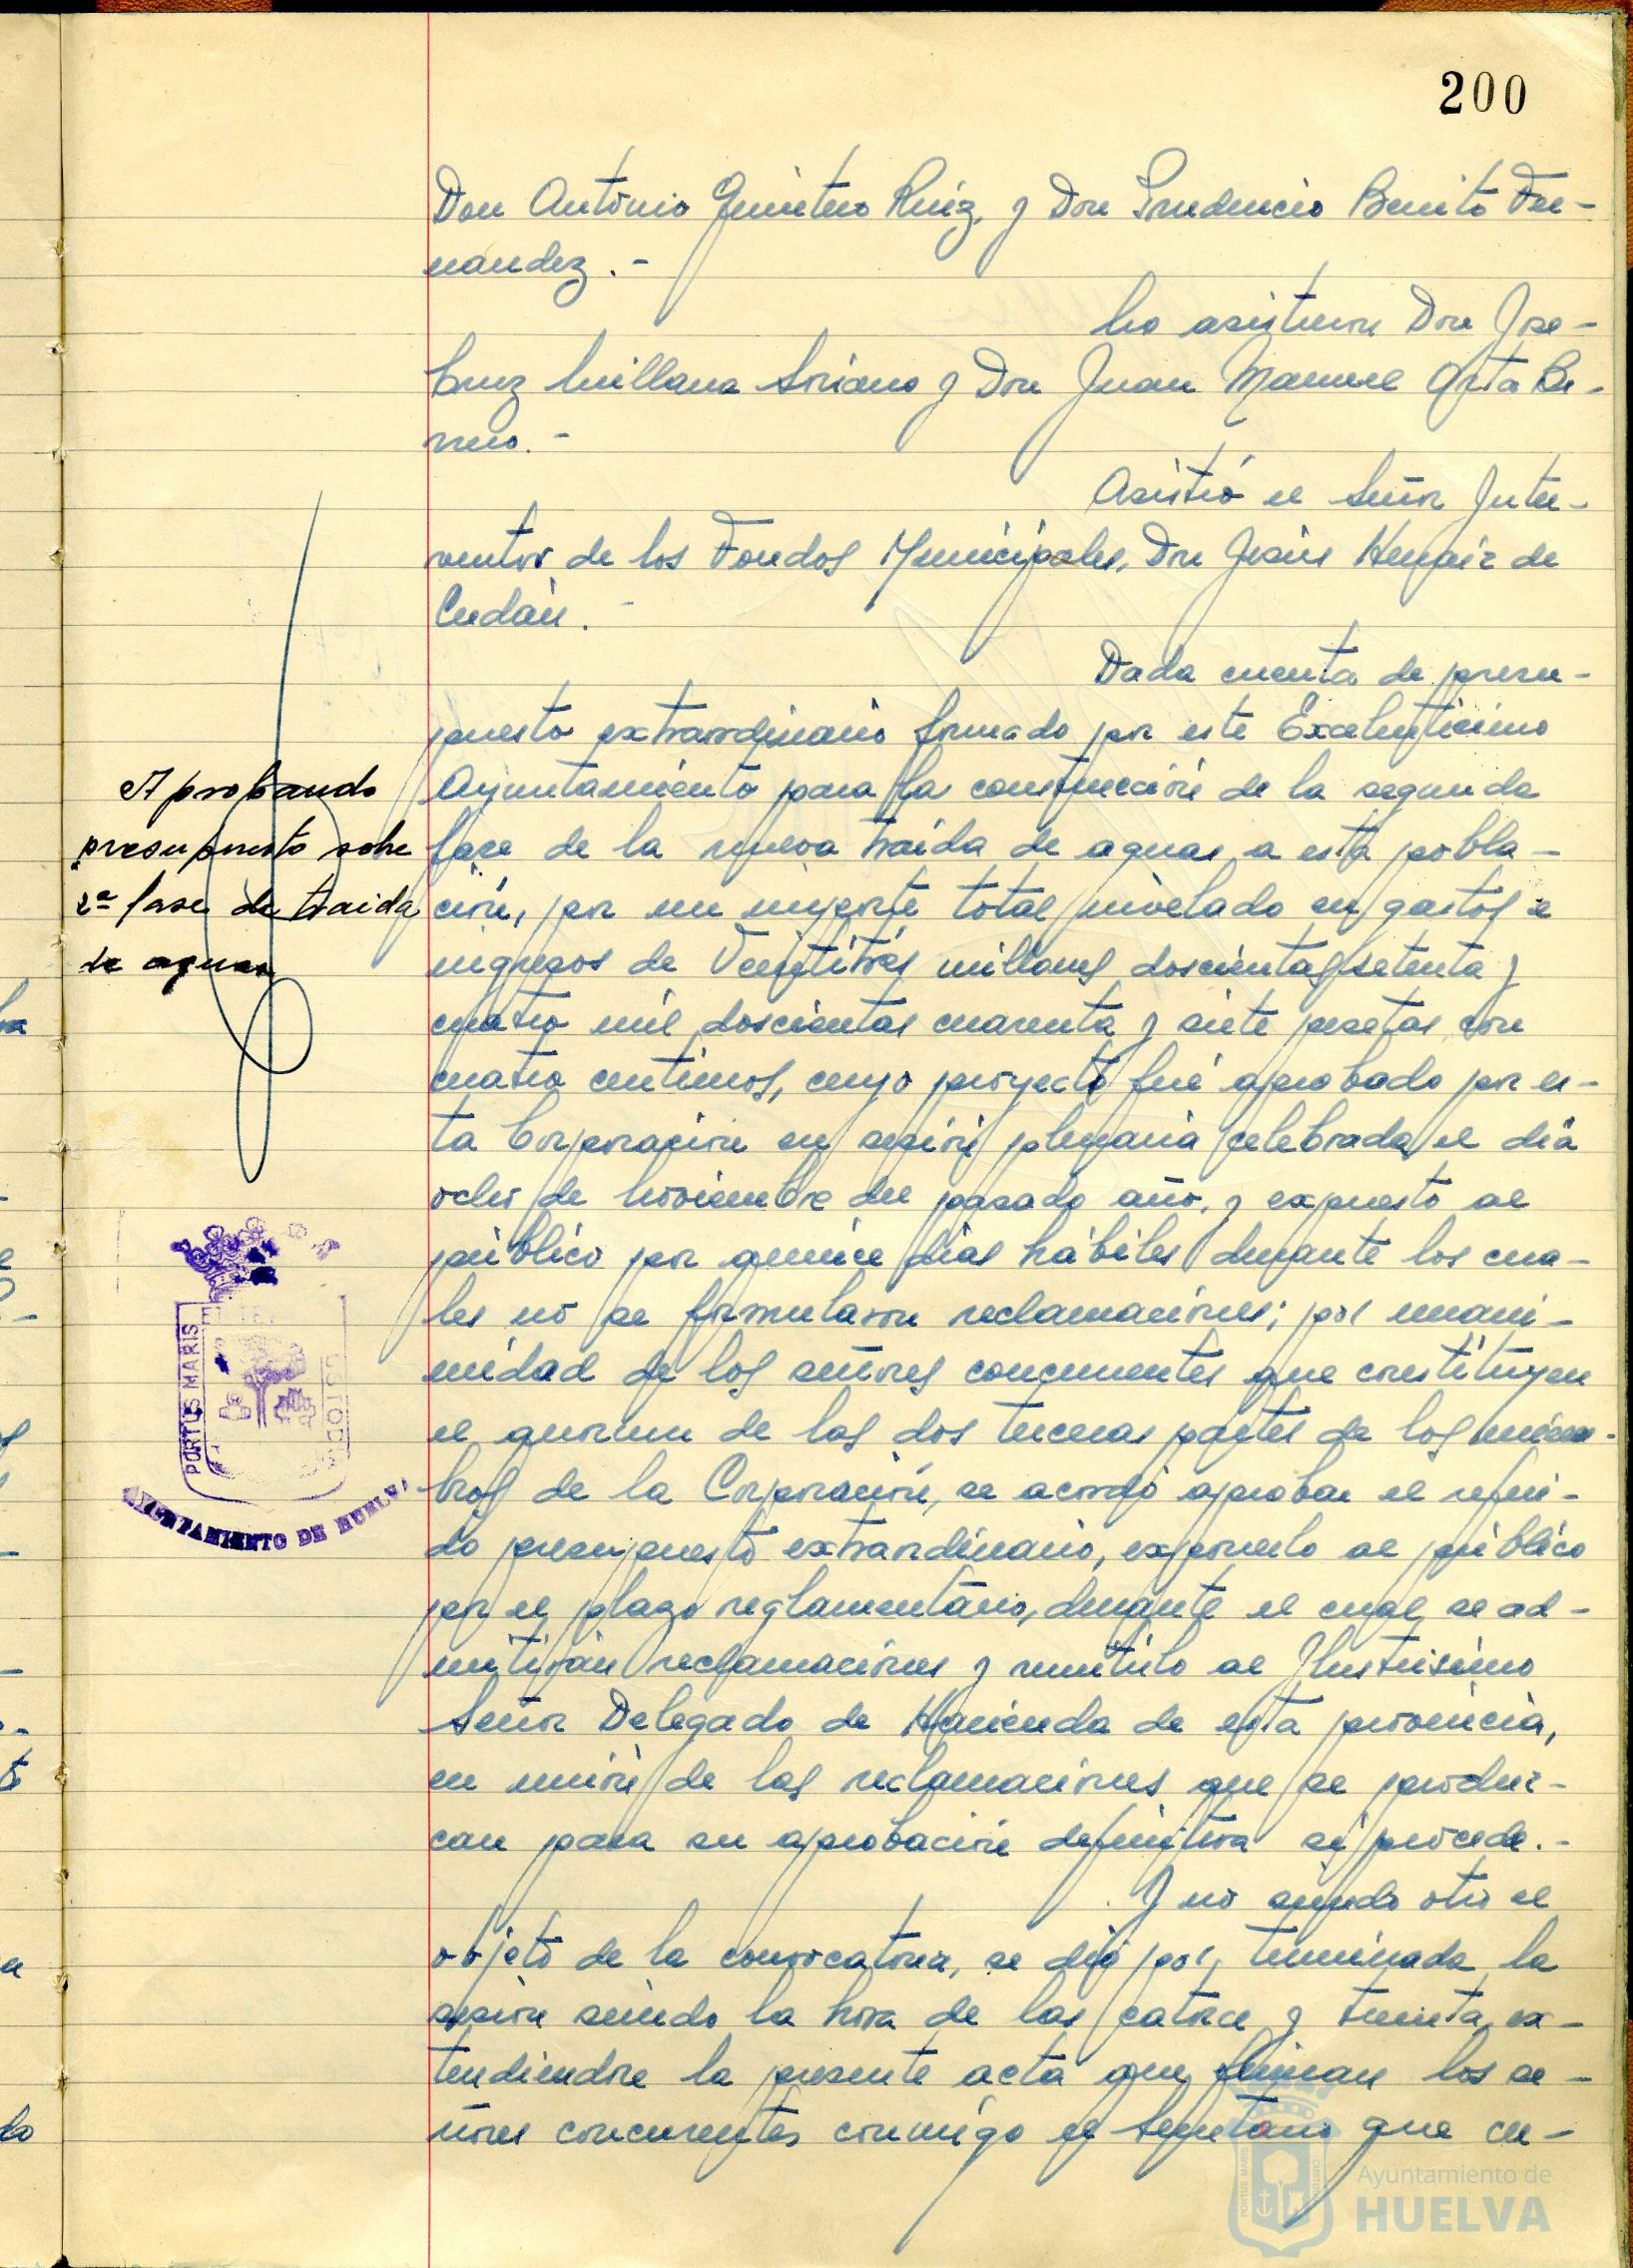 200
Don Antonio Quintero Ruiz, y Don Prudencio Benito Fer-
nandez.-
No asistieron Don Jose-
Cruz Quillana Soriano y Don Juan Manuel Orta Be-
rreo.-
Asistió el Señor Inter-
ventor de los Fondos Municipales, Don Jesús Hemair de
.-
Dada cuenta de presu-
puesto extraordinario formado por este Excelentísimo
Aprobando
Ayuntamiento para la construcción de la segunda
presupuesto sobre
fase de la nueva traída de aguas a esta pobla-
2ª fase de traida
ción, por un importe total nivelado en gastos e
de aguas
ingresos de Veintitrés millones doscientas setenta y
cuatro mil doscientas cuarenta y siete pesetas con
cuatro centimos, cuyo proyecto fué aprobado por es-
ta Corporación en sesión plenaria celebrada el día
ocho de Noviembre del pasado año, y expuesto al
público por quince días hábiles durante los cua-
les no se formularon reclamaciones; por unani-
midad de los señores concurrentes que constituyen
el quorum de las dos terceras partes de los miem-
bros de la Corporación, se acordó aprobar el referi-
do presupuesto extraordinario, exponerlo al público
por el plazo reglamentario, durante el cual se ad-
mitirán reclamaciones y remitirlo al Ilustrisimo
Señor Delegado de Hacienda de esta provincia,
en unión de las reclamaciones que se produz-
can para su aprobación definitiva si procede.-
Y no siendo otro el
objeto de la convocatoria, se dió por terminada la
sesión siendo la hora de las catorce y treinta, ex-
tendiendose la presente acta que firman los se-
ñores concurrentes conmigo el Secretario que cer-
PORTUS MARIS
ET TER
CUSTODIA
AYUNTAMIENTO DE HUELVA
Ayuntamiento de
HUELVA